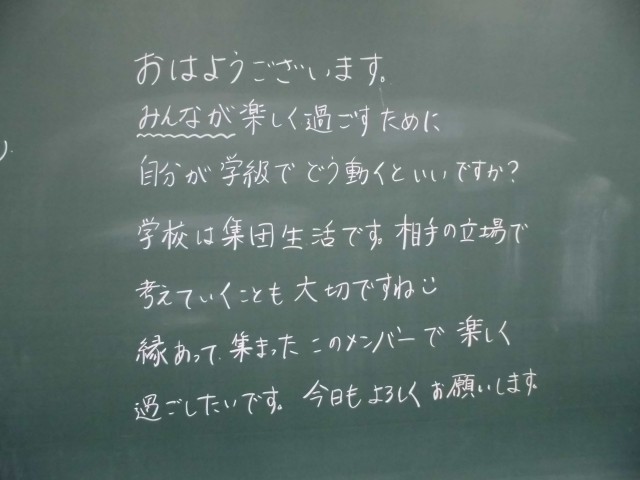 おはようございます。
みんなが楽しく過ごすために
自分が学級でどう動くといいですか?
学校は集団生活です。相手の立場で
考えていくことも大切ですね
縁あって集まったこのメンバーで楽しく
過ごしたいです。今日もよろしくお願いします。